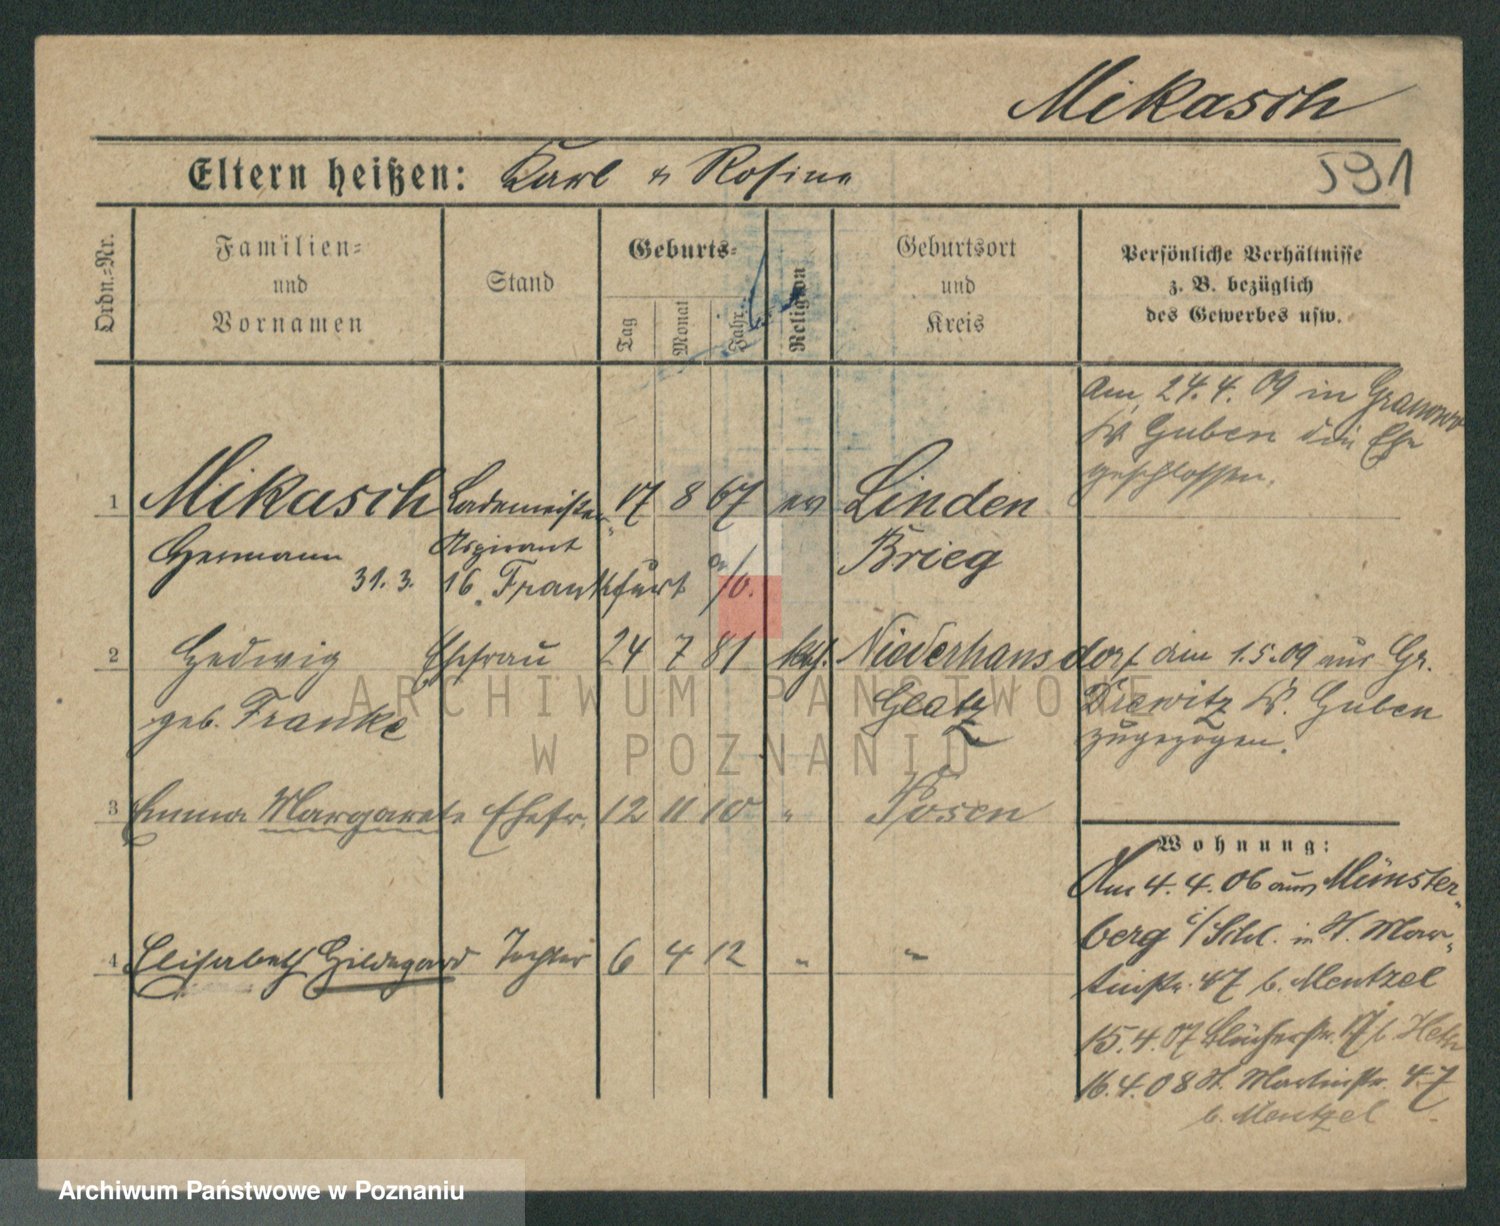 Mikasch
Eltern heißen: Karl u Rosina
591
Ordn.=Nr.
Familien=
und
Vornamen
Stand
Geburts=
Tag
Monat
Jahr
Religion
Geburtsort
und
Kreis
Persönliche Verhältnisse
z. B. bezüglich
des Gewerbes usw.
Am 24. 4. 09 in Granow
Kr Guben die Ehe
geschlossen.
1 Mikasch Lademeister 17 8 67 ev Linden
Hermann Aspirant Brieg
31. 3. 16. Frankfurt a/O.
2 Hedwig Ehefrau 24 7 81 kth. Niederhansdorf am 1.5.09 aus Gr.
geb. Franke Glatz Drewitz Kr. Guben
zugezogen.
3 Emma Margarete Ehefr. 12 11 10 " Posen
4 Elisabeth Hildegard Tochter 6 4 12 " "
Wohnung:
Am 4. 4. 06 aus Münster-
berg i/Schl. in St. Mar-
tinstr. 47 b. Mentzel
15. 4. 07 Blücherstr. 17 b
16. 4. 08 St. Martinstr. 47
b. Mentzel
ARCHIWUM PAŃSTWOWE
W POZNANIU
Archiwum Państwowe w Poznaniu